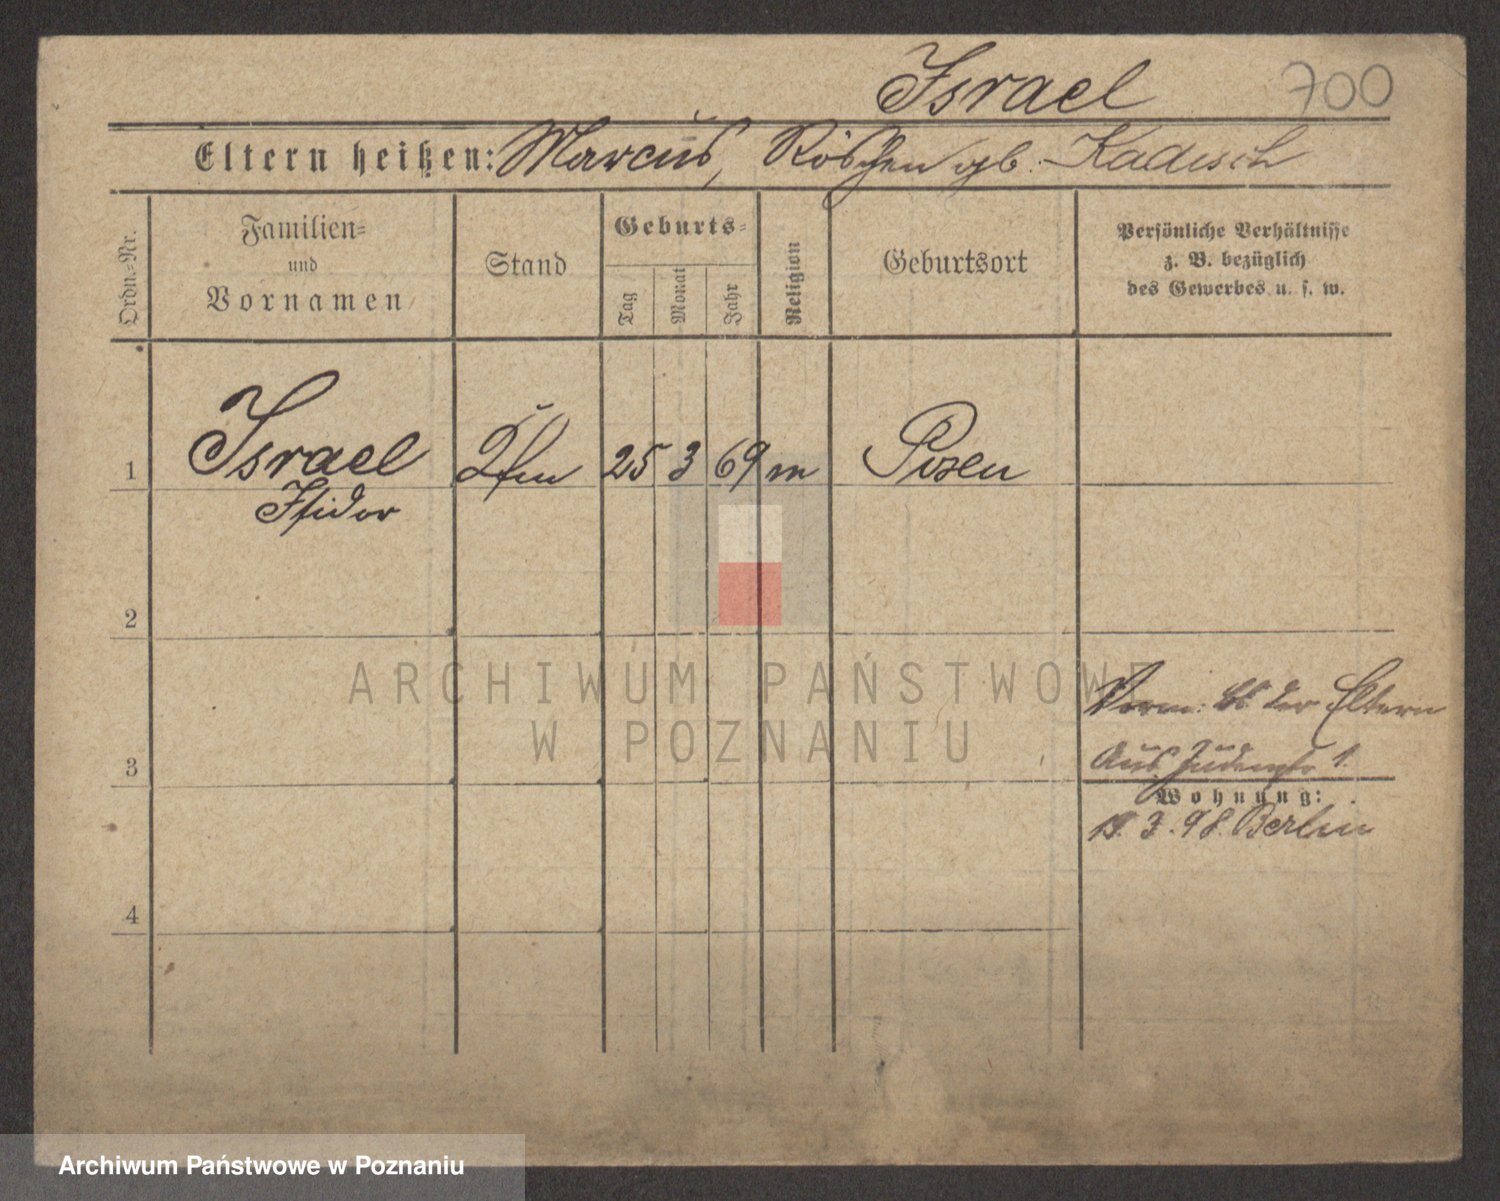 Israel 700
Eltern heißen: Marcus, Röschen gb. Kadisch
Ordn.-Nr.
Familien-
und
Vornamen
Stand
Geburts-
Tag
Monat
Jahr
Religion
Geburtsort
Persönliche Verhältnisse
z. B. bezüglich
des Gewerbes u. s. w.
1 Israel 25 3 69 m Posen
Isidor
2
ARCHIWUM PAŃSTWOWE
W POZNANIU
der Eltern
3
Aus Judenstr 1.
Wohnung:
3. 98. Berlin
4
Archiwum Państwowe w Poznaniu